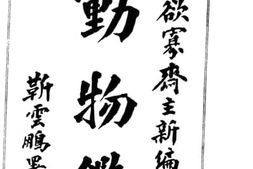 欲寡齋主新編
動物
靳雲鵬